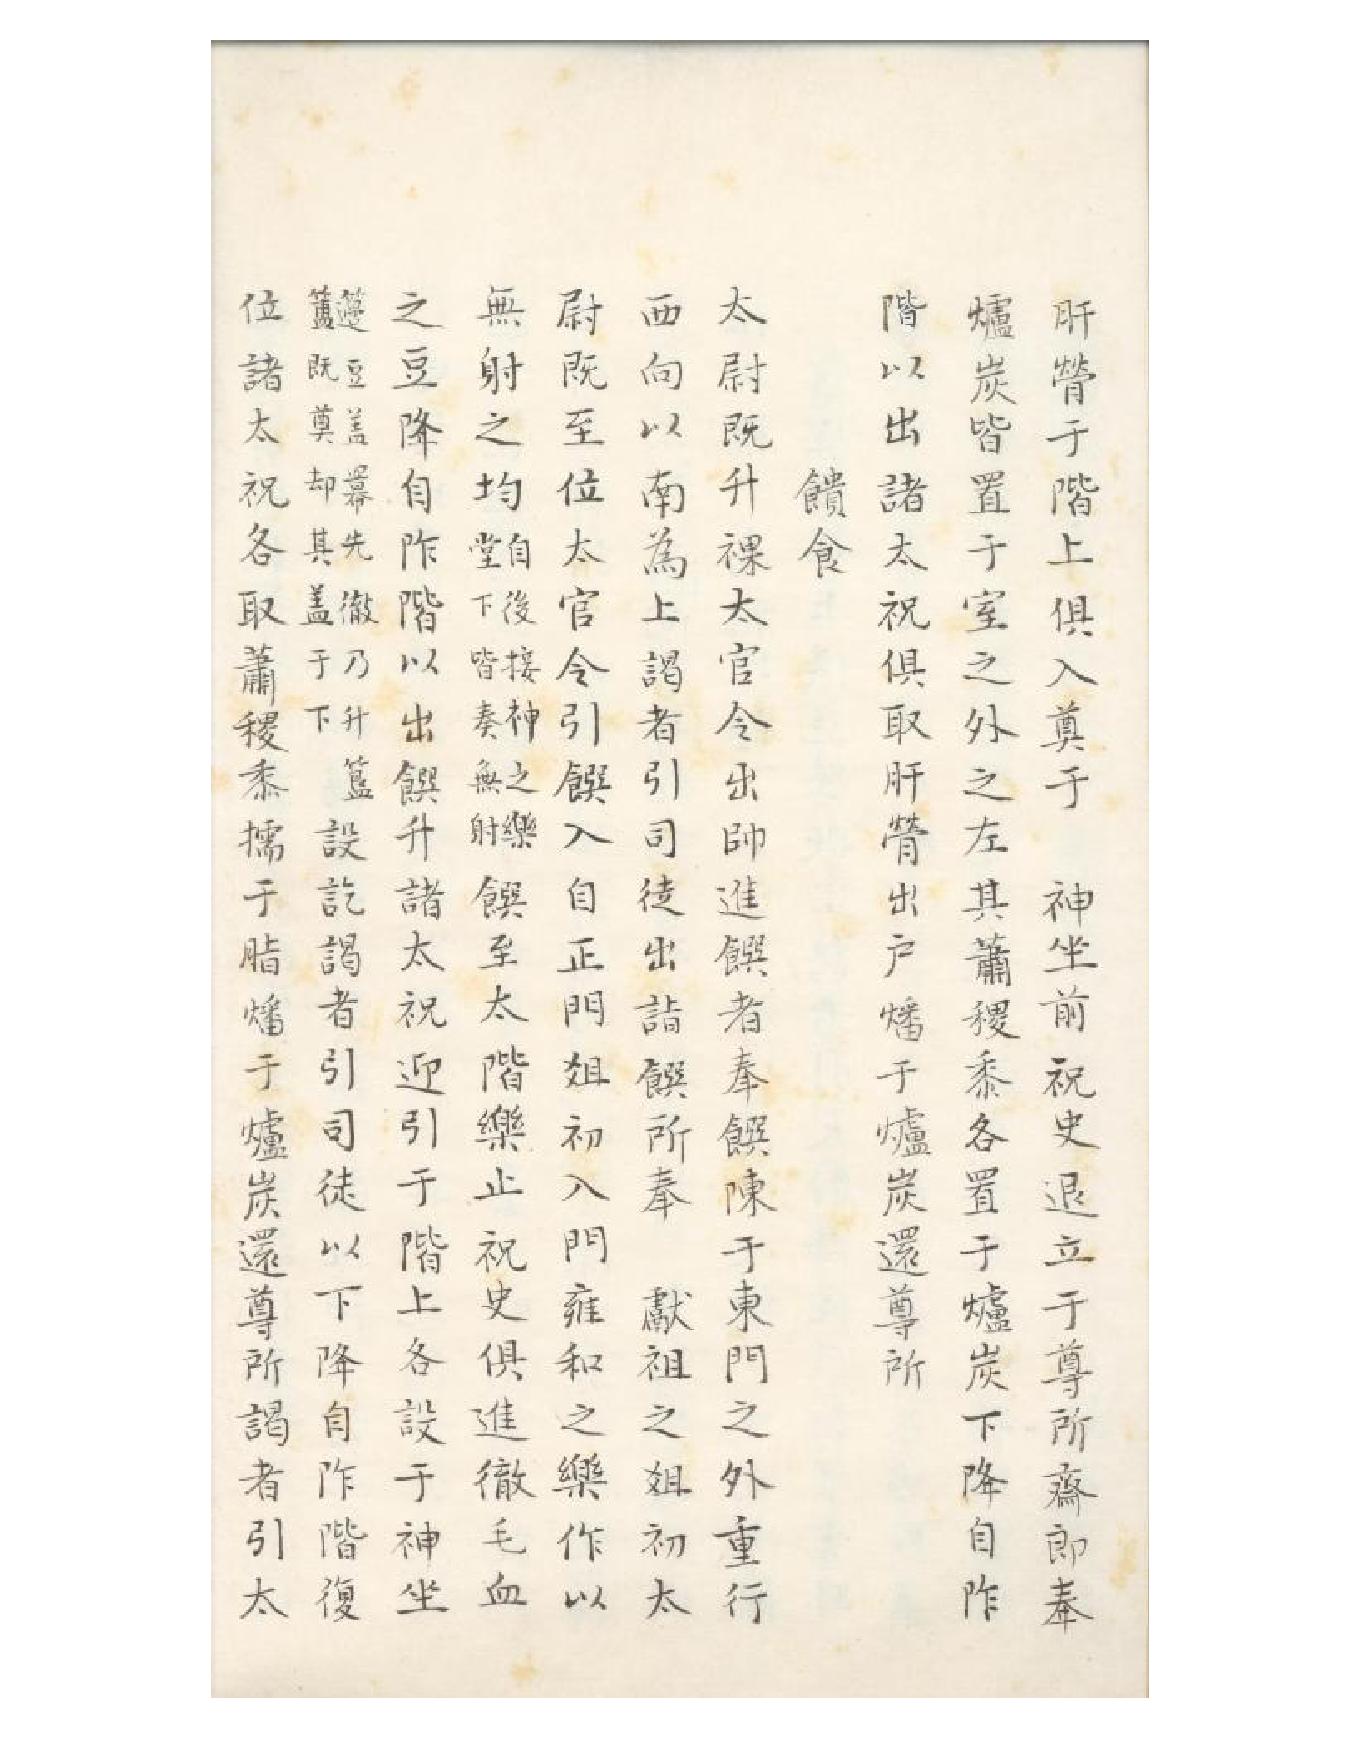 肝膋于階上俱入奠于　神坐前祝史退立于尊所齋郎奉
爐炭皆置于室之外之左其蕭稷黍各置于爐炭下降自阼
階以出諸太祝俱取肝膋出户燔于爐炭還尊所
饋食
太尉既升祼太官令出帥進饌者奉饌陳于東門之外重行
西向以南為上謁者引司徒出詣饌所奉　獻祖之俎初太
尉既至位太官令引饌入自正門俎初入門雍和之樂作以
無射之均自後接神之樂堂下皆奏無射饌至太階樂止祝史俱進徹毛血
之豆降自阼階以出饌升諸太祝迎引于階上各設于神坐
籩豆盖冪先徹乃升簋簠既奠却其盖于下設訖謁者引司徒以下降自阼階復
位諸太祝各取蕭稷黍擩于脂燔于爐炭還尊所謁者引太